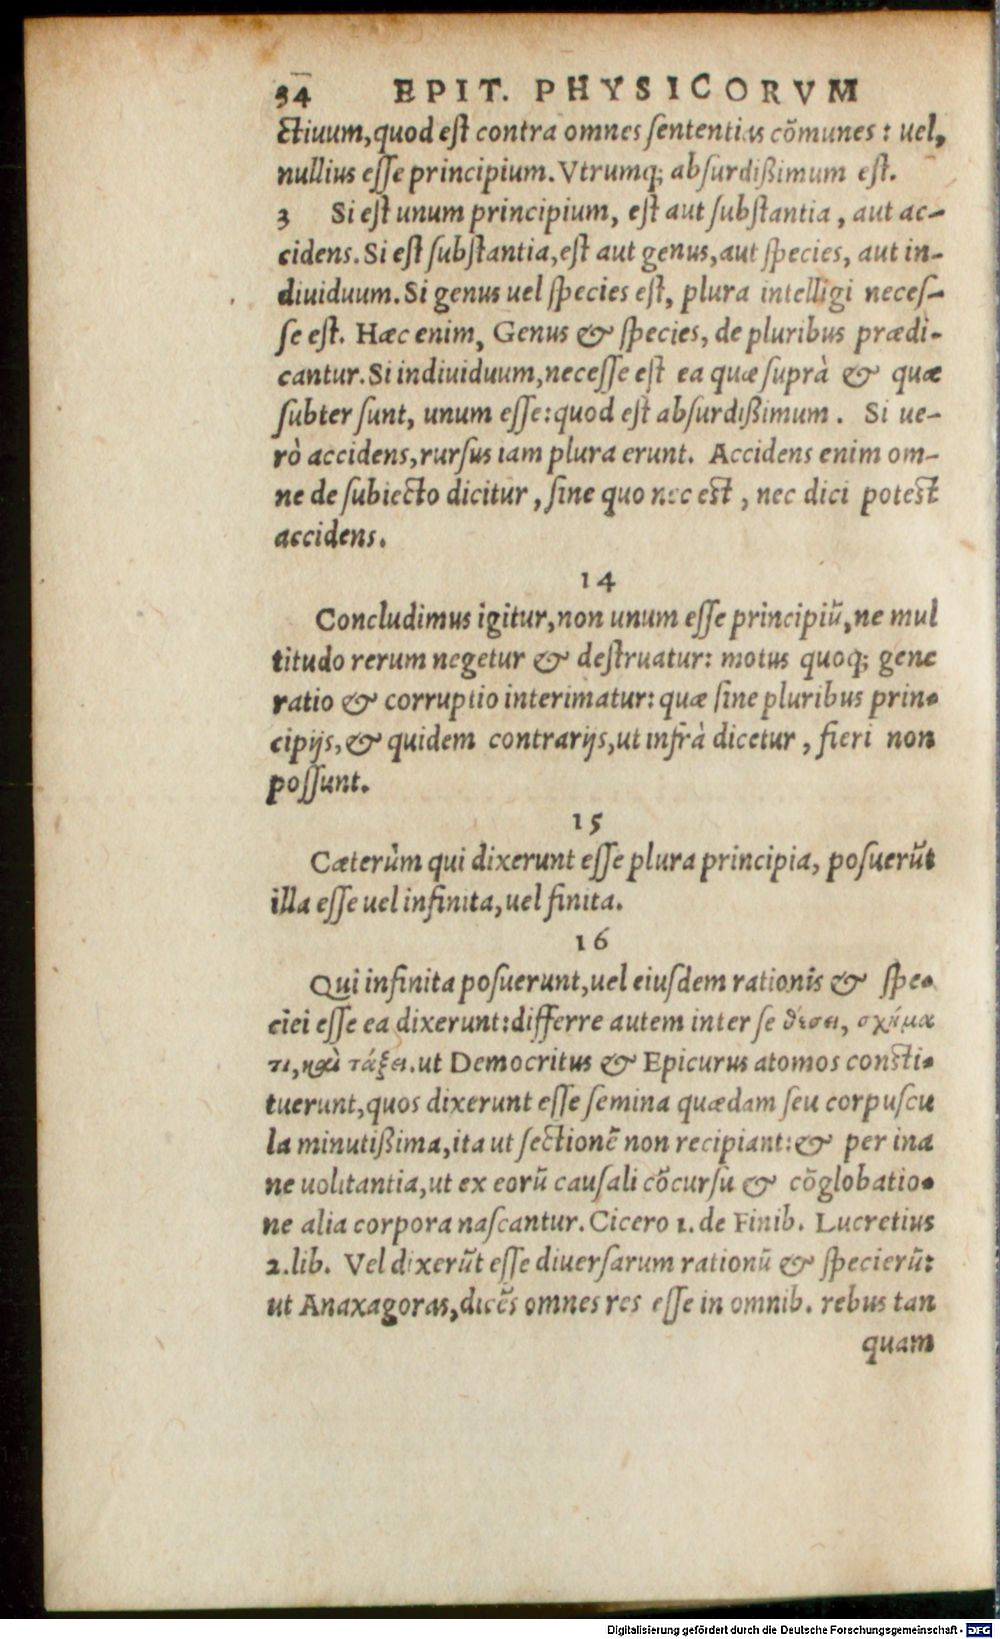 34 EPIT. PHYSICORVM
ctiuum, quod est contra omnes sententias cōmunes : uel,
nullius esse principium. Vtrumq; absurdißimum est.
3 Si est unum principium, est aut substantia, aut ac-
cidens. Si est substantia, est aut genus, aut species, aut in-
diuiduum. Si genus uel species est, plura intelligi neces-
se est. Hæc enim, Genus & species, de pluribus prædi-
cantur. Si indiuiduum, necesse est ea quæ suprà & quæ
subter sunt, unum esse: quod est absurdißimum. Si ue-
rò accidens, rursus iam plura erunt. Accidens enim om-
ne de subiecto dicitur, sine quo nec est, nec dici potest
accidens.
14
Concludimus igitur, non unum esse principiũ, ne mul
titudo rerum negetur & destruatur: motus quoq; gene
ratio & corruptio interimatur: quæ sine pluribus prin-
cipijs, & quidem contrarijs, ut infrà dicetur, fieri non
possunt.
15
Cæterùm qui dixerunt esse plura principia, posuerũt
illa esse uel infinita, uel finita.
16
Qui infinita posuerunt, uel eiusdem rationis & spe-
ciei esse ea dixerunt: differre autem inter se θέσει, σχήμα
τι, καὶ τάξει. ut Democritus & Epicurus atomos consti-
tuerunt, quos dixerunt esse semina quædam seu corpuscu
la minutißima, ita ut sectionē non recipiant: & per ina
ne uolitantia, ut ex eorũ causali cōcursu & cōglobatio-
ne alia corpora nascantur. Cicero 1. de Finib. Lucretius
2. lib. Vel dixerũt esse diuersarum rationũ & specierũ:
ut Anaxagoras, dicẽs omnes res esse in omnib. rebus tan
quam
Digitalisierung gefördert durch die Deutsche Forschungsgemeinschaft - DFG